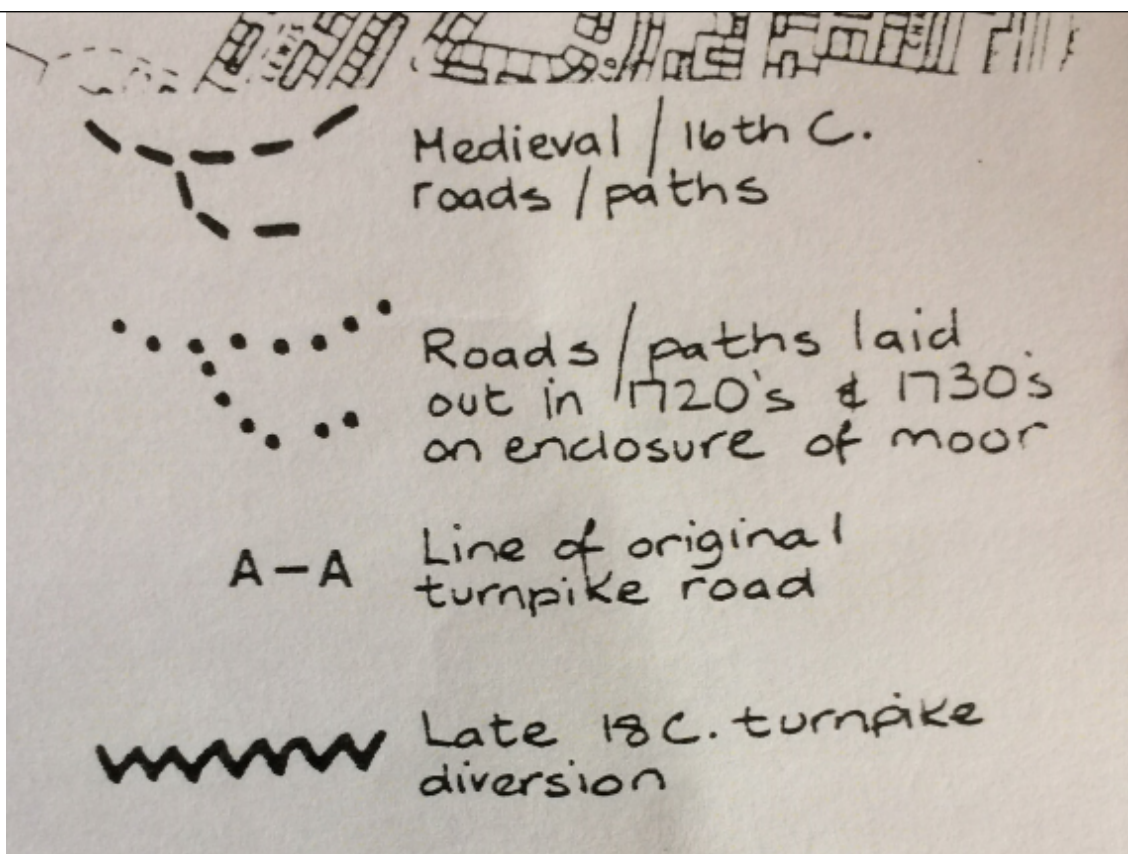 LEWIS
Medieval / 16th C.
roads / paths
Roads / paths laid
out in 1720's & 1730's
on enclosure of moor
A – A
Line of original
turnpike road
Late 18 C. turnpike
diversion